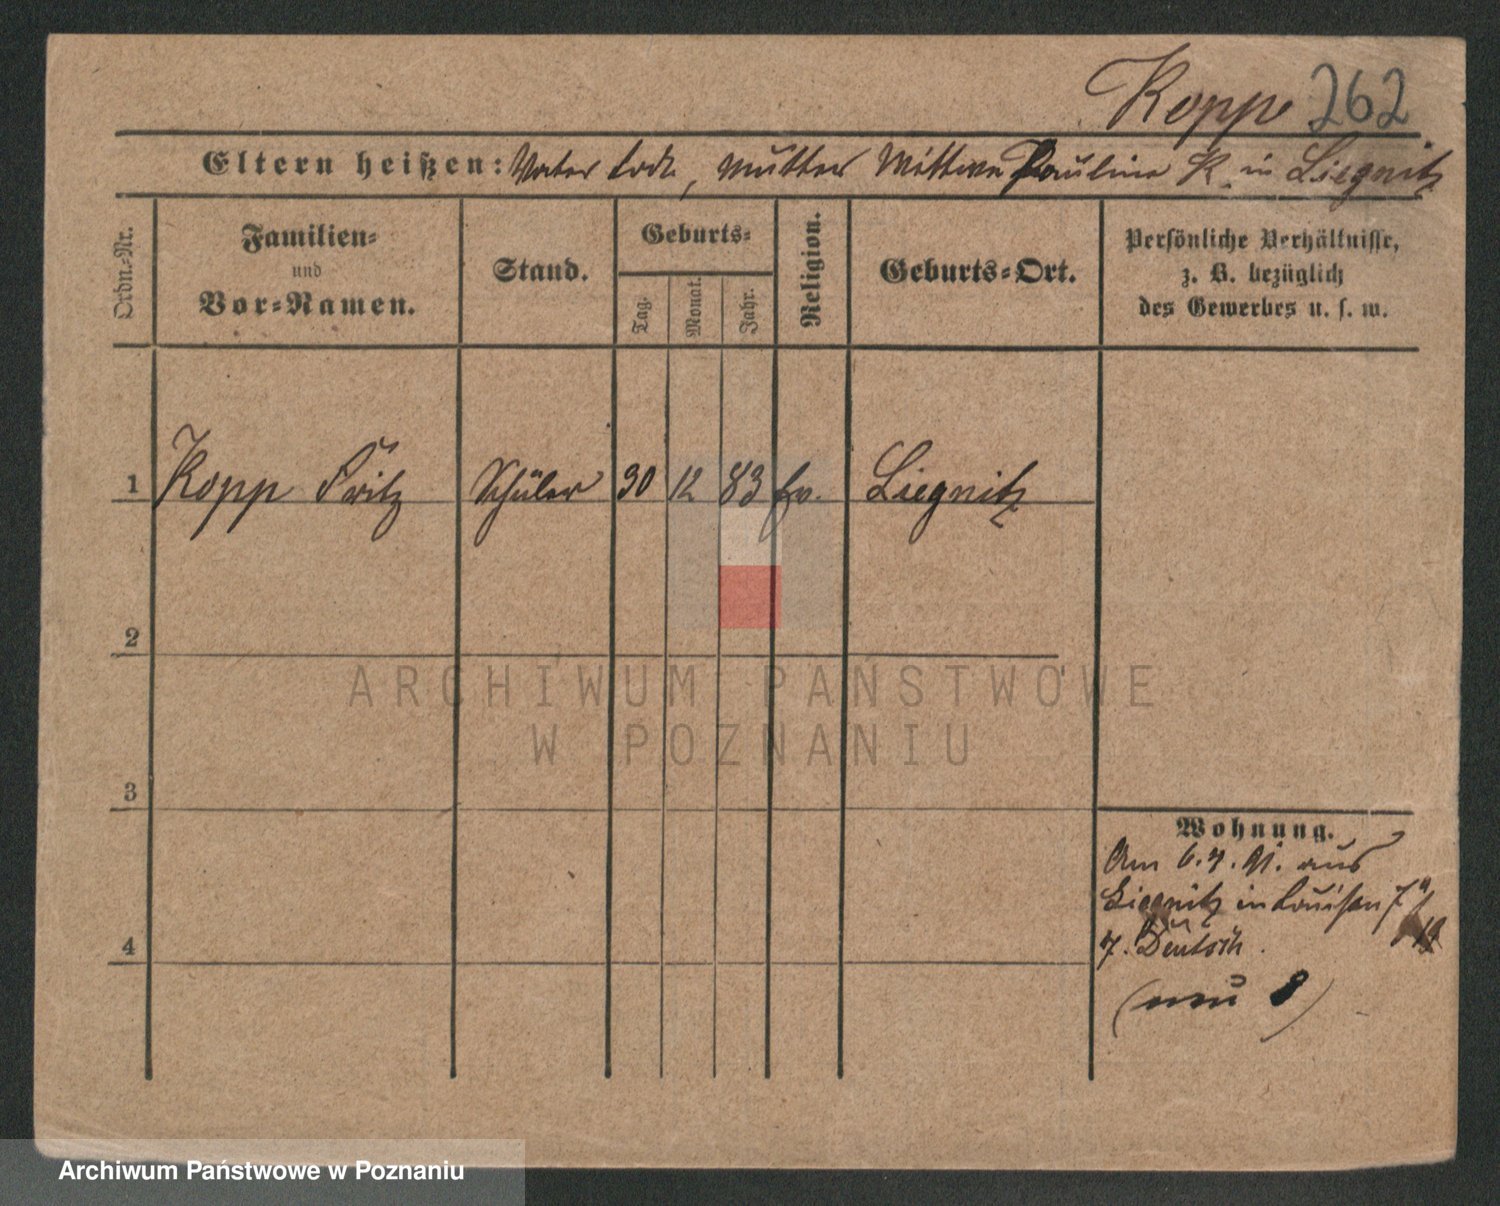 Kopp 262
Eltern heißen: Vater todt, Mutter Wittwe Pauline K. in Liegnitz
Ordn.-Nr.
Familien=
und
Vor=Namen.
Stand.
Geburts=
Tag.
Monat.
Jahr.
Religion.
Geburts=Ort.
Persönliche Verhältnisse,
z. B. bezüglich
des Gewerbes u. s. w.
1 Kopp Fritz Schüler 30 12 83 ev. Liegnitz
2
3
4
Wohnung.
Am 6.7.91. aus
Liegnitz in Louisen 7a/
7. Deutsch.
(neu 8)
ARCHIWUM PAŃSTWOWE
W POZNANIU
Archiwum Państwowe w Poznaniu